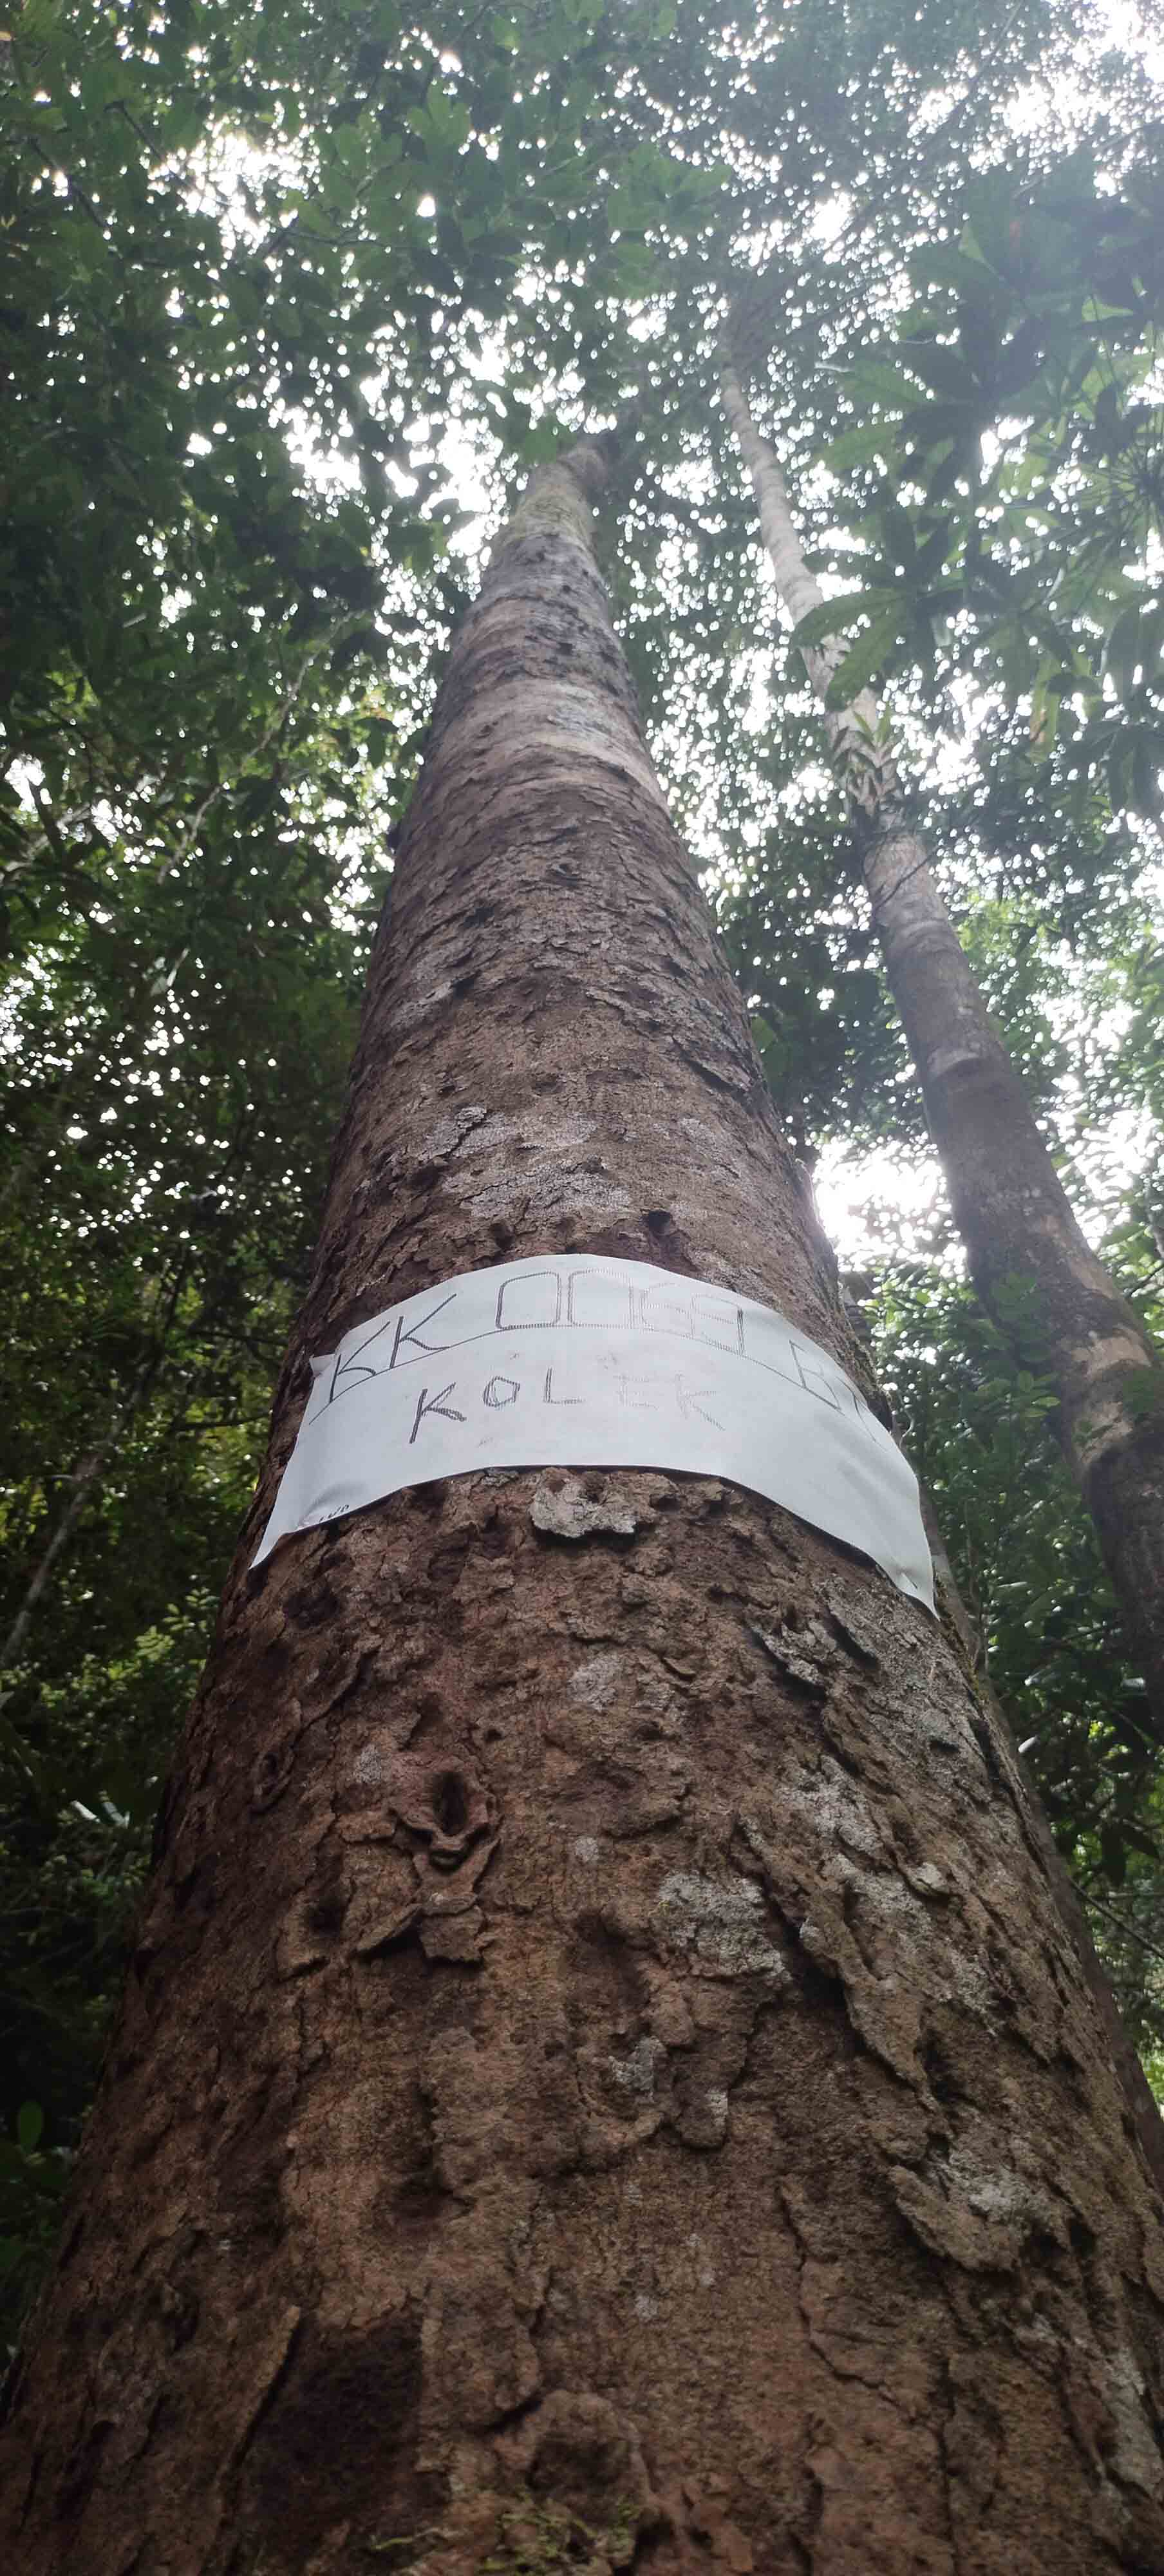 KK 00169 B
KOLEK